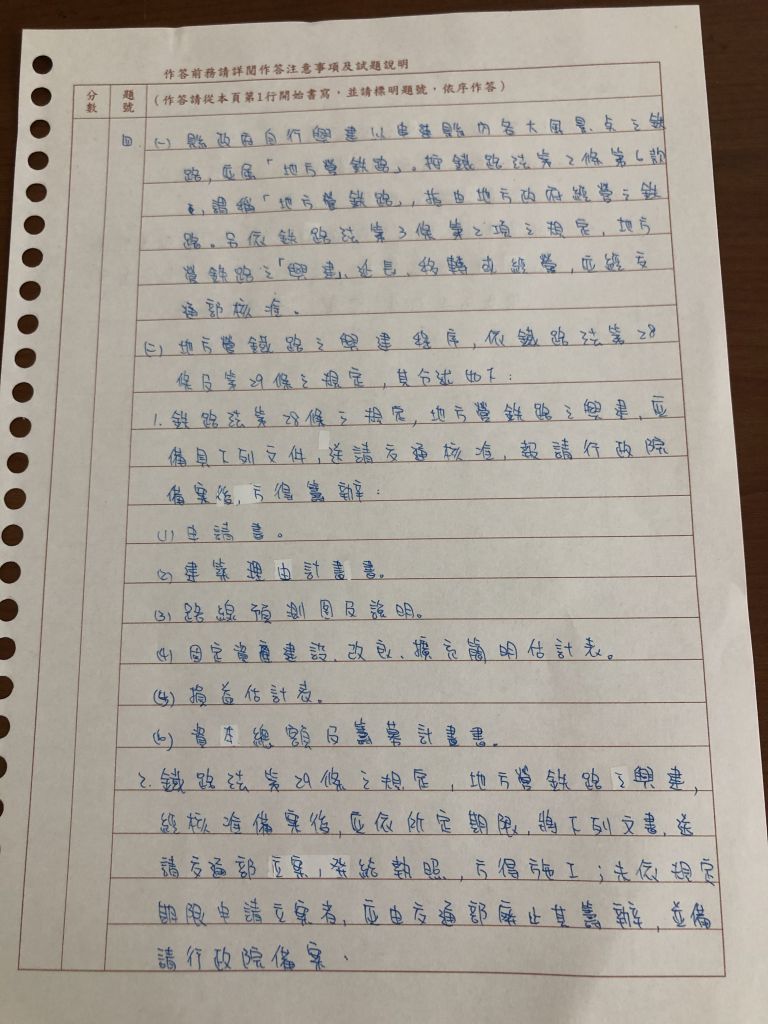 作答前務請詳閱作答注意事項及試題說明
分數 題號 (作答請從本頁第1行開始書寫，並請標明題號，依序作答)
四 (一) 縣政府自行興建以串連縣內各大風景點之鉄
路，應屬「地方營鉄路」。按鐵路法第2條第6款
，謂稱「地方營鉄路」，指由地方政府經營之鉄
路。另依鉄路法第3條第2項之規定，地方
營鉄路之「興建」、延長、移轉或經營，應經交
通部核准。
(二) 地方營鐵路之興建程序，依鐵路法第28
條及第29條之規定，其分述如下：
1. 鉄路法第28條之規定，地方營鉄路之興建，應
備具下列文件，送請交通核准，報請行政院
備案後，方得籌辦：
(1) 申請書。
(2) 建築理由計畫書。
(3) 路線預測圖及說明。
(4) 固定資產建設、改良、擴充簡明估計表。
(5) 損益估計表。
(6) 資本總額及籌募計畫書。
2. 鐵路法第29條之規定，地方營鉄路之興建，
經核准備案後，應依所定期限，將下列文書，送
請交通部立案，發給執照，方得施工；未依規定
期限申請立案者，應由交通部廢止其籌辦，並備
請行政院備案、